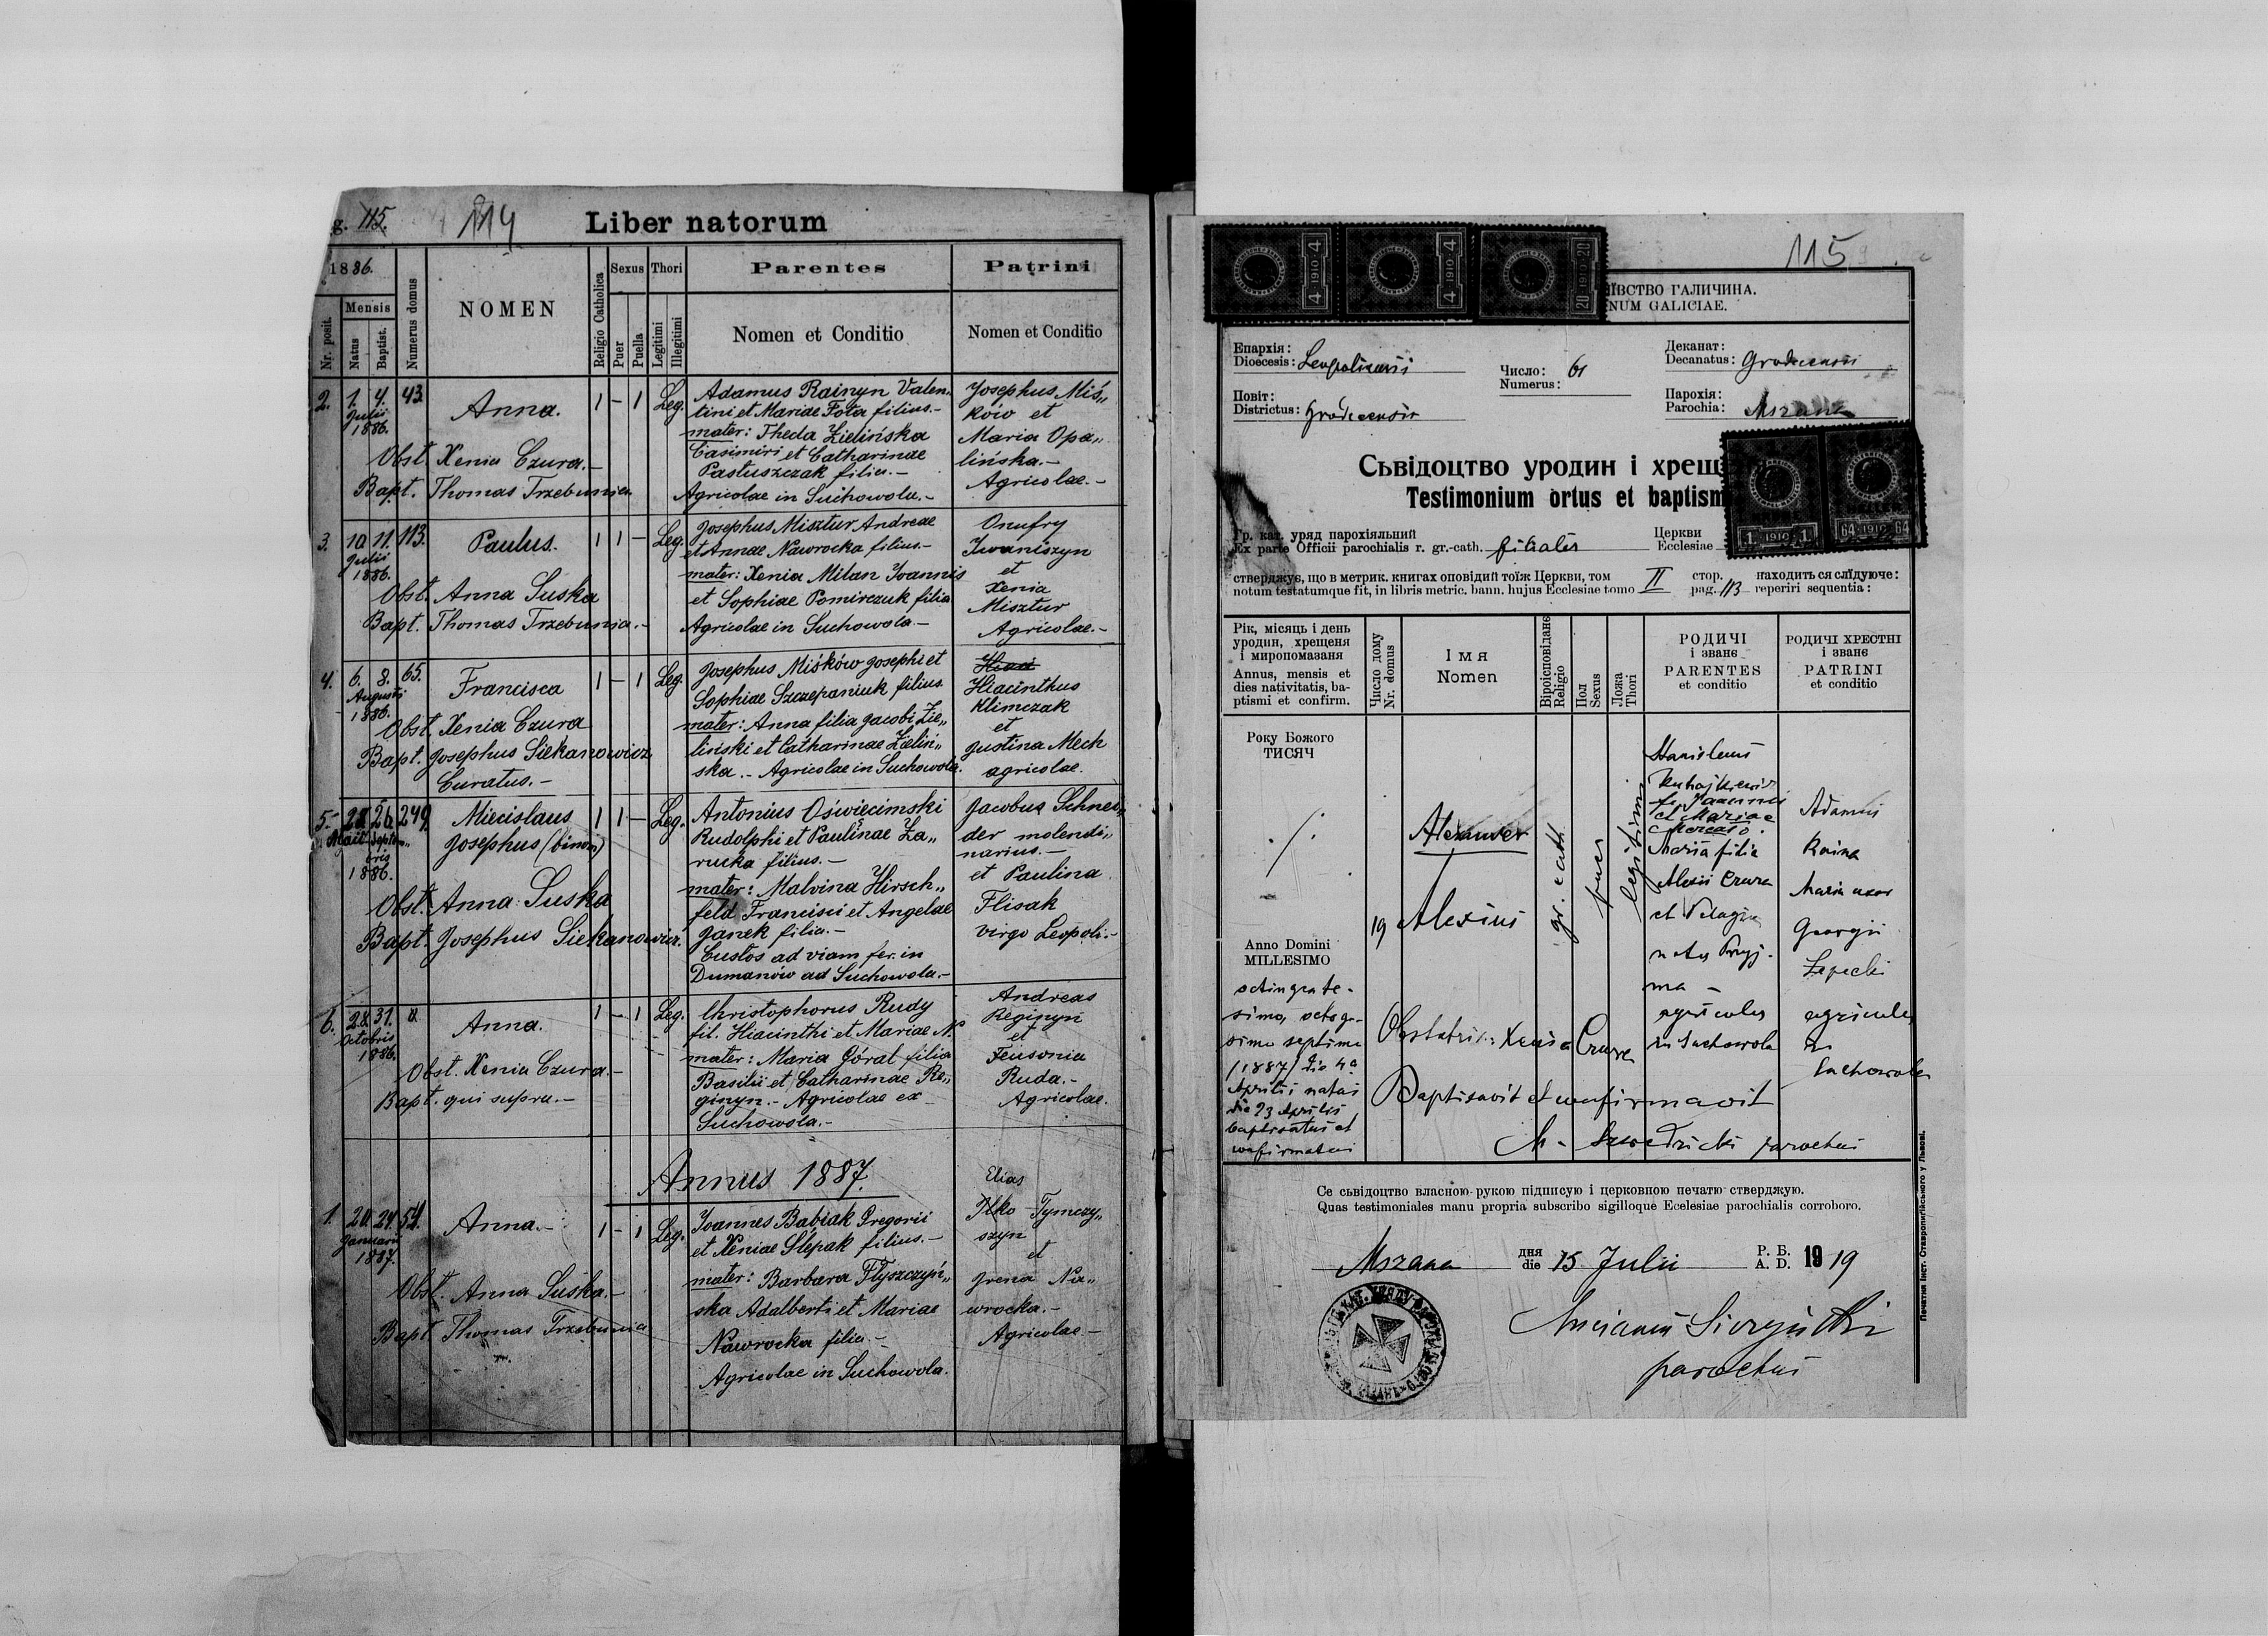 g. 115.
114
Liber natorum
1886.
Nr. posit.
Mensis
Natus
Baptist.
Numerus domus
NOMEN
Religio Catholica
Sexus
Puer
Puella
Thori
Legitimi
Illegitimi
Parentes
Nomen et Conditio
Patrini
Nomen et Conditio
2. 1. 4. 43.
Julii
1886.
Anna.
1 – 1 Leg.
Obst. Xenia Czura.–
Bapt. Thomas Trzebunia
Adamus Rainyn Valen„
tini et Mariae Fota filius.–
mater: Theda Zielińska
Casimiri et Catharinae
Pastuszczak filia.–
Agricolae in Suchowola.–
Josephus Miś„
ków et
Maria Opa„
lińska.–
Agricolae.–
3. 10. 11. 113.
Julii
1886.
Paulus.
1 1 – Leg.
Obst. Anna Suska
Bapt. Thomas Trzebunia.–
Josephus Misztur Andreae
et Annae Nawrocka filius.–
mater: Xenia Milan Joannis
et Sophiae Pomirczuk filia
Agricolae in Suchowola.–
Onufry
Iwaniszyn
et
Xenia
Misztur
Agricolae.–
4. 6. 8. 65.
Augusti
1886.
Francisca
1 – 1 Leg.
Obst. Xenia Czura
Bapt. Josephus Siekanowicz
Curatus.–
Josephus Miśków Josephi et
Sophiae Szczepaniuk filius.
mater: Anna filia Jacobi Zie„
liński et Catharinae Zieliń„
ska.– Agricolae in Suchowola.
Hiacinthus
Klimczak
et
Justina Mech
agricolae.
5. 26. 249.
Maii Septem„
bris
1886.
Miecislaus
Josephus (binom)
1 1 – Leg.
Obst. Anna Suska
Bapt. Josephus Siekanowicz.
Antonius Oświęcimski
Rudolphi et Paulinae Za„
rucka filius.–
mater: Malvina Hirsch„
feld Francisci et Angelae
Janek filia.–
Custos ad viam fer. in
Dumanów ad Suchowola.–
Jacobus Schnei„
der molendi„
narius.–
et Paulina
Flisak
virgo Leopoli.–
6. 28. 31.
Octobris
1886.
Anna.
1 – 1 Leg.
Obst. Xenia Czura.–
Bapt. qui supra.–
Christophorus Rudy
fil. Hiacinthi et Mariae N.
mater: Maria Góral filia
Basilii et Catharinae Re„
ginyn.– Agricolae ex
Suchowola.–
Andreas
Reginyn
et
Feusonia
Ruda.–
Agricolae.
Annus 1887.
1. 20. 24. 54.
Januarii
1887.
Anna.–
1 – 1 Leg.
Obst. Anna Suska.–
Bapt. Thomas Trzebunia
Joannes Babiak Gregorii
et Xeniae Ślepak filius.–
mater: Barbara Flyszczyń„
ska Adalberti et Mariae
Nawrocka filia.–
Agricolae in Suchowola.
Elias
Ilko Tymczy„
szyn
et
Irena Na„
wrocka.–
Agricolae.–
115
4 1910 4
4 1910 4
20 1910 20
ЇВСТВО ГАЛИЧИНА.
NUM GALICIAE.
Епархія:
Dioecesis: Leopoliensis
Число:
Numerus: 61
Деканат:
Decanatus: Grodecensis
Повіт:
Districtus: Grodecensis
Парохія:
Parochia: Mszana
1 1910 1
64 1910 64
Сьвідоцтво уродин і хрещ
Testimonium ortus et baptism
Гр. кат. уряд парохіяльний
Ex parte Officii parochialis r. gr.-cath. filialis
Церкви
Ecclesiae
стверджує, що в метрик. книгах оповідий тоїж Церкви, том II стор. находить ся слідуюче:
notum testatumque fit, in libris metric. bann. hujus Ecclesiae tomo pag. 113 reperiri sequentia:
Рік, місяць і день
уродин, хрещеня
і миропомазаня
Annus, mensis et
dies nativitatis, ba-
ptismi et confirm.
Число дому
Nr. domus
Імя
Nomen
Віроісповіданє
Religio
Пол
Sexus
Ложа
Thori
РОДИЧІ
і званє
PARENTES
et conditio
РОДИЧІ ХРЕСТНІ
і званє
PATRINI
et conditio
Року Божого
ТИСЯЧ
Anno Domini
MILLESIMO
octingente-
simo, octoge-
simo septimo
/1887/ die 4ª
Aprilis natus
die 23 Aprilis
baptisatus et
confirmatus
19
Alexander
Alexius
gr. cath.
puer
legitimi
Stanislaus
f. Joannis
et Mariae
Maria filia
Alexii Czura
et Pelagia
agricolae
in Suchowola
Adamus
Raina
Maria uxor
Georgii
Łapecki
agricolae
in
Suchowola
Obstetrix: Xenia Czura
Baptisavit et confirmavit
parochus
Се сьвідоцтво власною рукою підписую і церковною печатю стверджую.
Quas testimoniales manu propria subscribo sigilloque Ecelesiae parochialis corroboro.
Mszana дня die 15 Julii Р. Б. A. D. 1919
parochus
Печатня Інст. Ставропигійського у Львові.